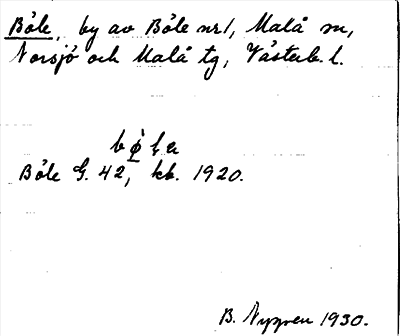 Böle, by av Böle nr 1, Malå sn,
Norsjö och Malå tg, Västerb. l.
Böle G. 42, kb. 1920.
B. Nygren 1930.